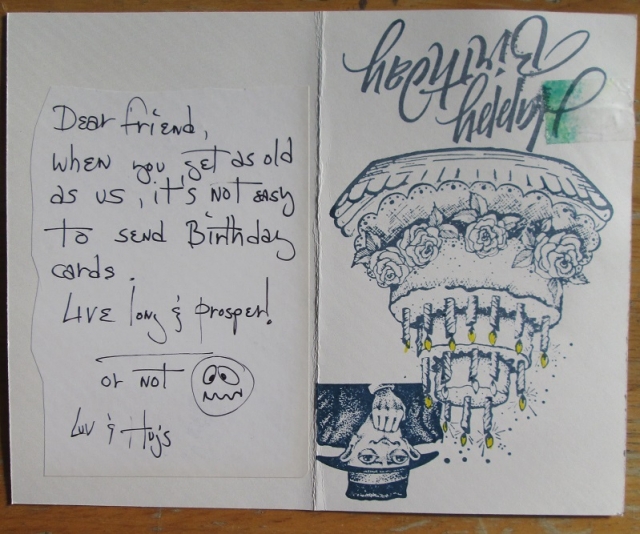 Dear friend,
when you get as old
as us, it's not easy
to send Birthday
cards.
Live long & prosper!
or not
Luv & Hugs
Happy
Birthday